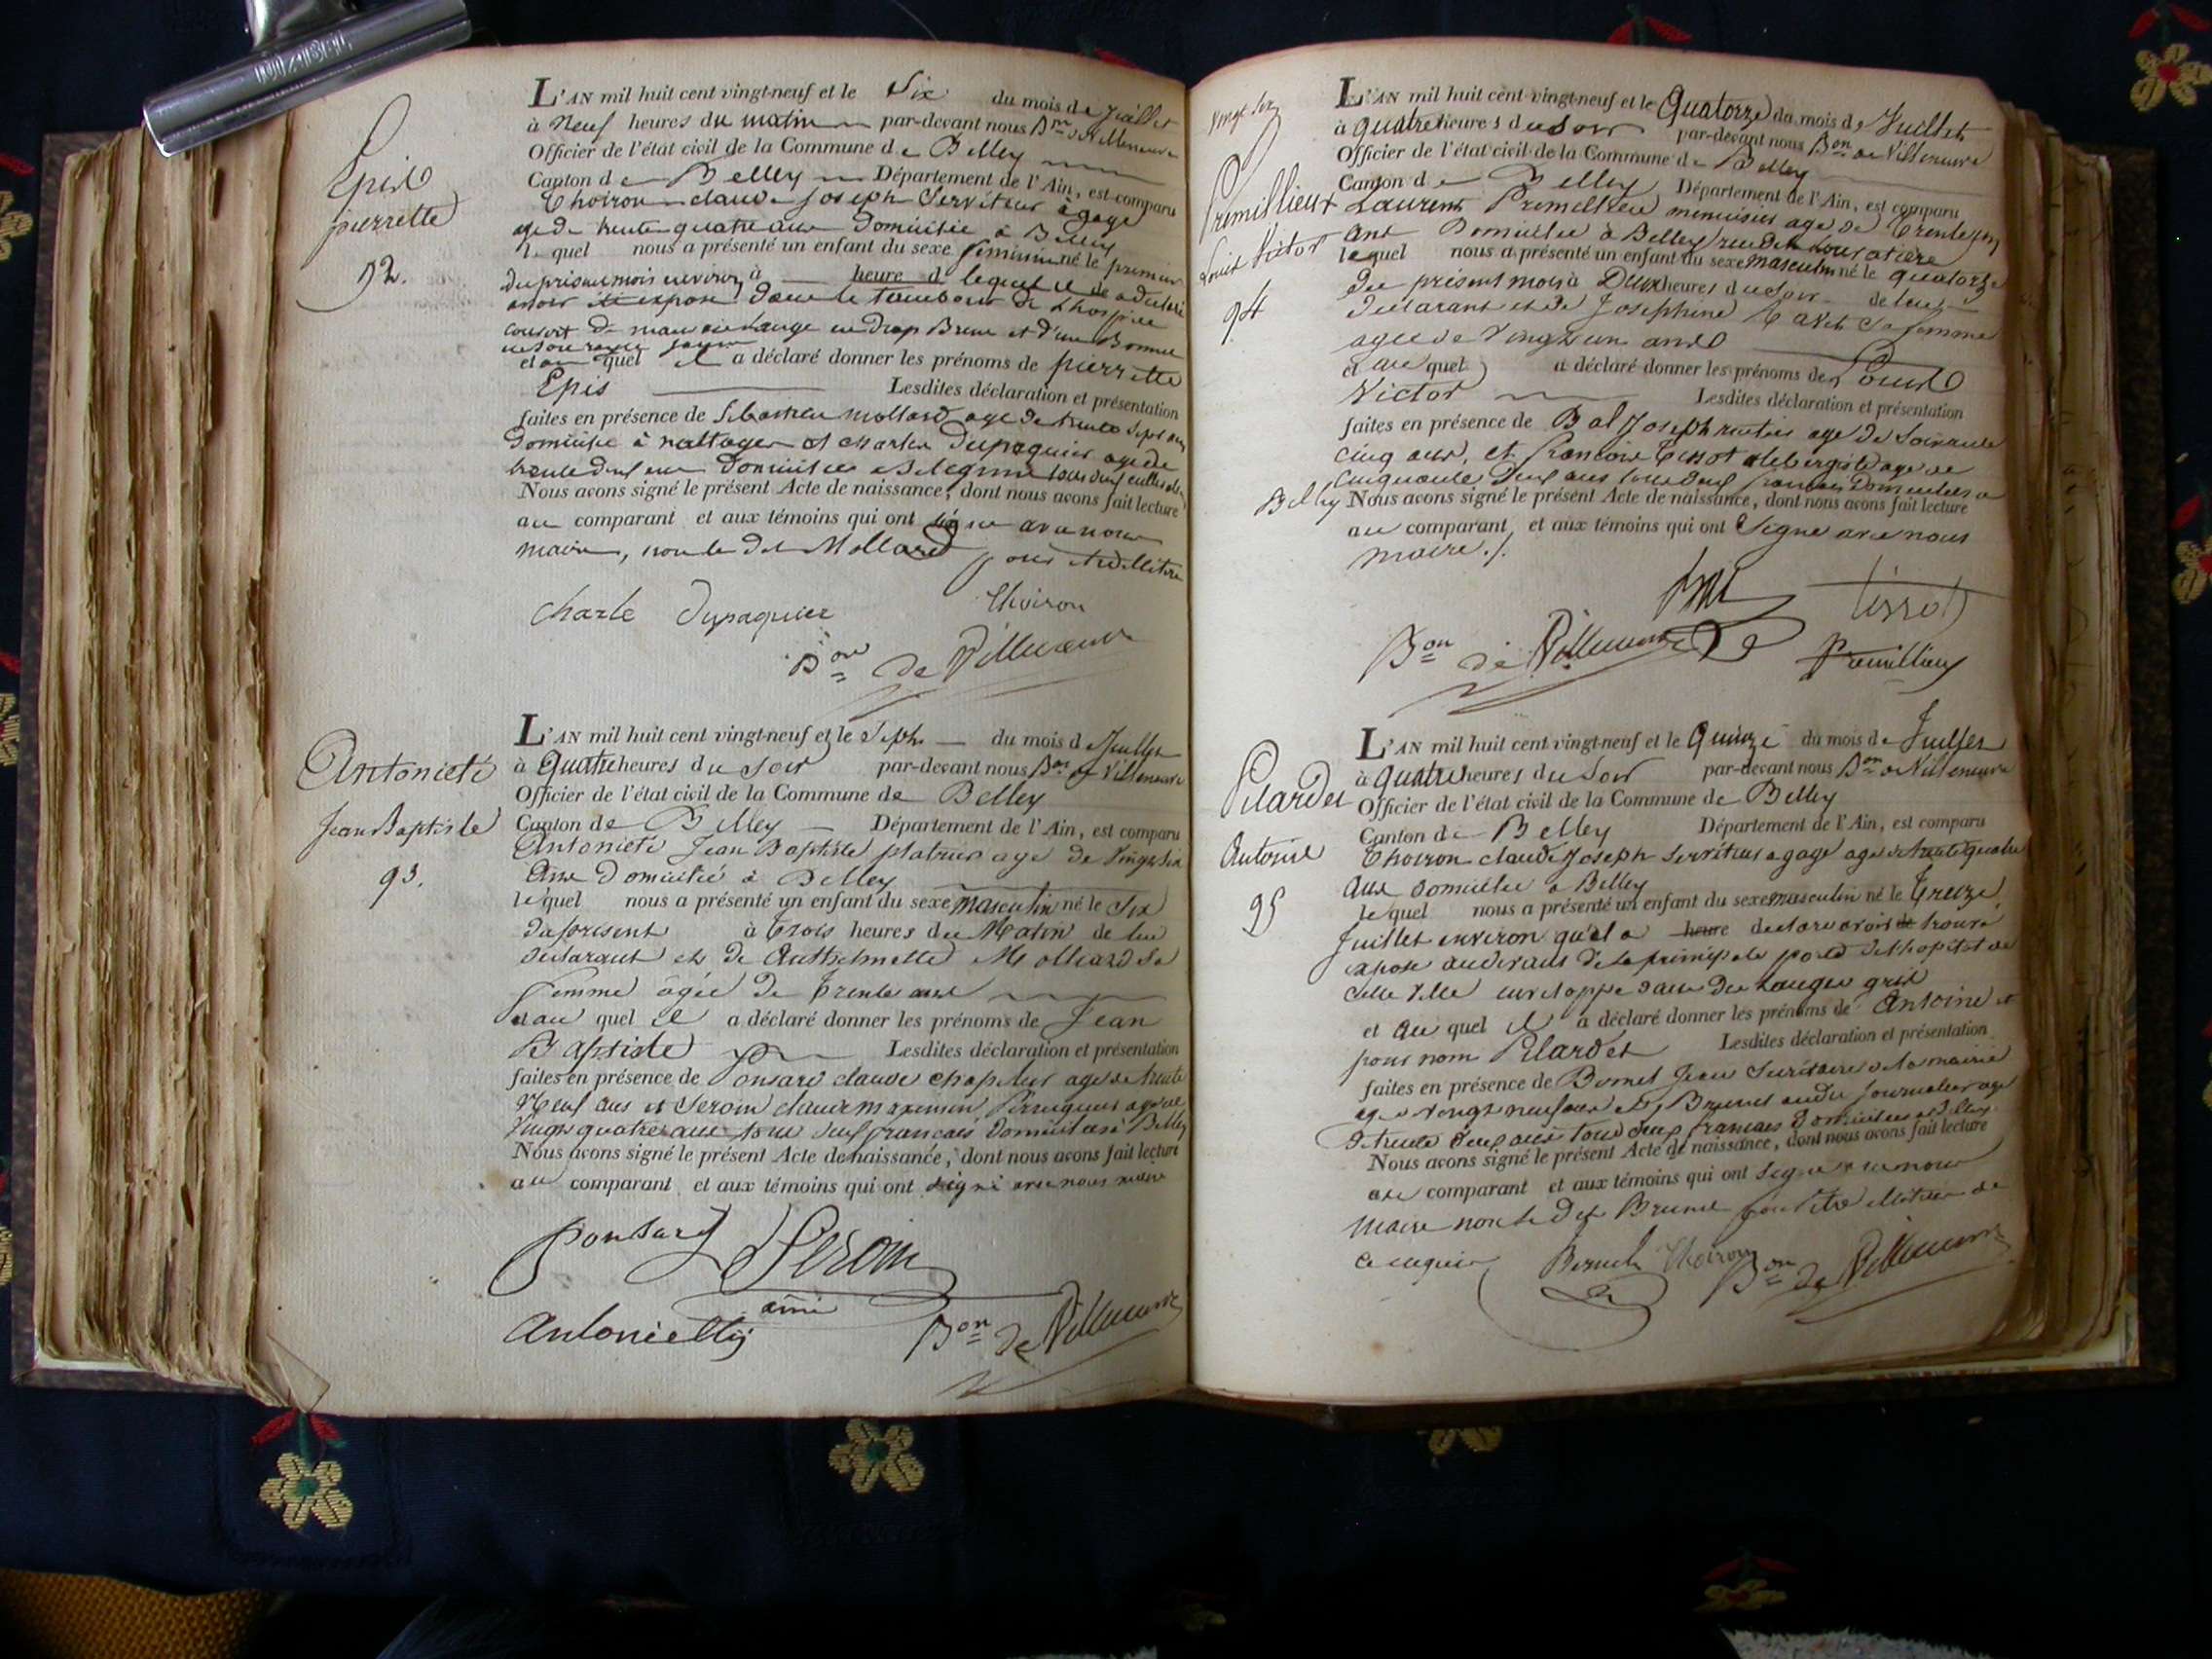 Epis
pierrette
92.
L'AN mil huit cent vingt-neuf et le Six du mois de Juillet
à Neuf heures du matin par-devant nous Bon de Villeneuve
Officier de l'état civil de la Commune de Belley
Canton de Belley Département de l'Ain, est comparu
Thoiron claude joseph Serviteur à gage
age de trente quatre ans Domicilié à Belley
lequel nous a présenté un enfant du sexe féminin né le premier
du présent mois environ à heure d lequel il a déclaré
avoir exposé dans le tambour de Lhospice
couvert de mauvais Lange en drap Brun et d'un Bonnet
et au quel il a déclaré donner les prénoms de pierrette
Epis Lesdites déclaration et présentation
faites en présence de Sébastien mollard age de trente Sept ans
Domicilié à nattages et charles Dupaquier age de
trente deux ans Domicilié
Nous avons signé le présent Acte de naissance, dont nous avons fait lecture
au comparant et aux témoins qui ont signé avec nous
maire, non le dit Mollard pour être illitéré
charle Dupaquier Thoiron
Bon de Villeneuve
Antonieti
Jean Baptiste
93.
L'AN mil huit cent vingt-neuf et le Sept du mois de Juillet
à Quatre heures du Soir par-devant nous Bon de Villeneuve
Officier de l'état civil de la Commune de Belley
Canton de Belley Département de l'Ain, est comparu
Antonieti Jean Baptiste platrier age de Vingt six
Ans Domicilié à Belley
lequel nous a présenté un enfant du sexe masculin né le Six
du présent à Trois heures du Matin de lui
déclarant et de Anthelmette Molliard Sa
femme agée de Trente ans
et au quel il a déclaré donner les prénoms de Jean
Baptiste Lesdites déclaration et présentation
faites en présence de Ponsard claude chapelier age de trente
Neuf ans et Seroin claude Perruquier age de
Vingt quatre ans tous deux français Domiciliés à Belley
Nous avons signé le présent Acte de naissance, dont nous avons fait lecture
au comparant et aux témoins qui ont signé avec nous maire
Ponsard Seroin
ainé
Antonietti Bon de Villeneuve
Vingt Six
Premillieux
Louis Victor
94
L'AN mil huit cent vingt-neuf et le Quatorze du mois de Juillet
à Quatre heures du Soir par-devant nous Bon de Villeneuve
Officier de l'état civil de la Commune de Belley
Canton de Belley Département de l'Ain, est comparu
Laurent Premillieu menuisier age de Trente
Ans Domicilié à Belley rue de
lequel nous a présenté un enfant du sexe masculin né le quatorze
du présent mois à Deux heures du Soir de lui
déclarant et de Josephine Sa femme
agée de Vingt un ans
et au quel a déclaré donner les prénoms de Louis
Victor Lesdites déclaration et présentation
faites en présence de Bal Joseph rentier age de Soixante
cinq ans, et francois Tissot aubergiste age de
Cinquante Deux ans tous deux français Domiciliés à
Belley Nous avons signé le présent Acte de naissance, dont nous avons fait lecture
au comparant et aux témoins qui ont Signé avec nous
maire./.
Bal Tissot
Bon de Villeneuve Premillieu
Pilardet
Antoine
95
L'AN mil huit cent vingt-neuf et le Quinze du mois de Juillet
à quatre heures du Soir par-devant nous Bon de Villeneuve
Officier de l'état civil de la Commune de Belley
Canton de Belley Département de l'Ain, est comparu
Thoiron claude Joseph Serviteur a gage age de trente quatre
Ans Domicilié à Belley
lequel nous a présenté un enfant du sexe masculin né le Treize
Juillet environ qu'il a heure déclaré avoir trouvé
exposé au devant de la principale porte de Lhopital de
cette Ville enveloppé dans des Langes gris
et au quel il a déclaré donner les prénoms de Antoine et
pour nom Pilardet Lesdites déclaration et présentation
faites en présence de Burnet Jean Secrétaire de la mairie
agé de vingt neuf ans et Brunet Journalier age
de trente deux ans tous deux français Domiciliés à Belley
Nous avons signé le présent Acte de naissance, dont nous avons fait lecture
au comparant et aux témoins qui ont signé avec nous
maire non le dit Brunet pour être illitéré de
ce requis Thoiron Bon de Villeneuve